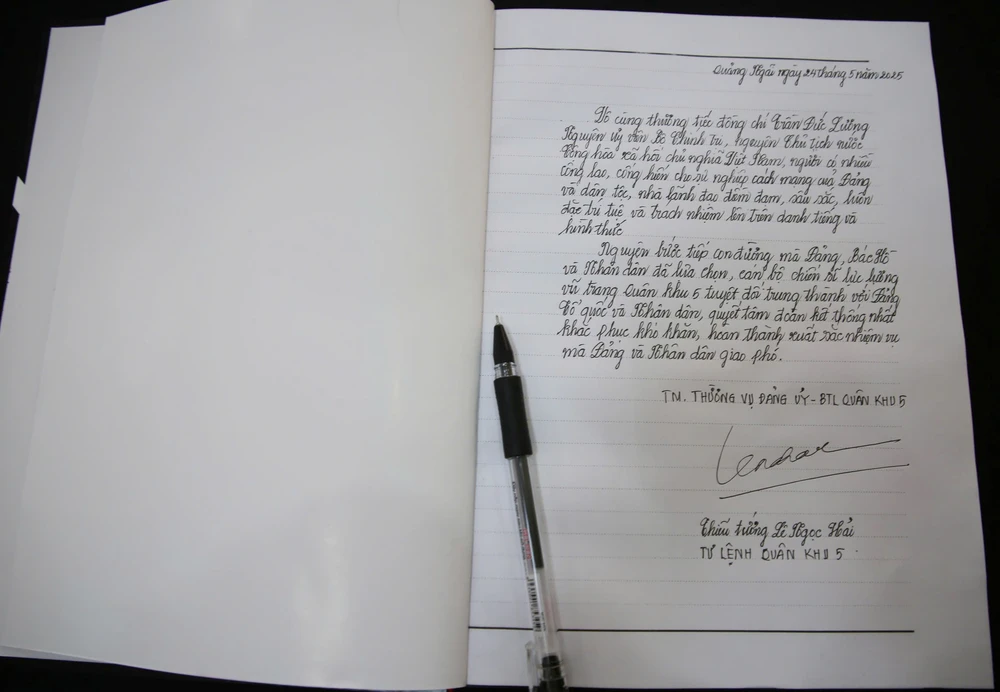 Quảng Ngãi ngày 24 tháng 5 năm 2025
Vô cùng thương tiếc đồng chí Trần Đức Lương
Nguyên Uỷ viên Bộ Chính trị, nguyên Chủ tịch nước
Cộng hòa xã hội chủ nghĩa Việt Nam, người có nhiều
công lao, cống hiến cho sự nghiệp cách mạng của Đảng
và dân tộc, nhà lãnh đạo điềm đạm, sâu sắc, luôn
đặt trí tuệ và trách nhiệm lên trên danh tiếng và
hình thức
Nguyện bước tiếp con đường mà Đảng, Bác Hồ
và Nhân dân đã lựa chọn, cán bộ chiến sĩ lực lượng
vũ trang Quân khu 5 tuyệt đối trung thành với Đảng
Tổ quốc và Nhân dân, quyết tâm đoàn kết thống nhất
khắc phục khó khăn, hoàn thành xuất sắc nhiệm vụ
mà Đảng và Nhân dân giao phó.
TM. THƯỜNG VỤ ĐẢNG ỦY - BTL QUÂN KHU 5
Thiếu tướng Lê Ngọc Hải
TƯ LỆNH QUÂN KHU 5